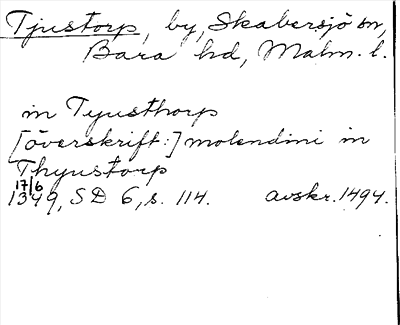 Tjustorp, by, Skabersjö sn,
Bara hd, Malm. l.
in Tyusthorp
[överskrift:] molendini in
Thyustorp
17/6
1349, SD 6, s. 114. avskr. 1494.